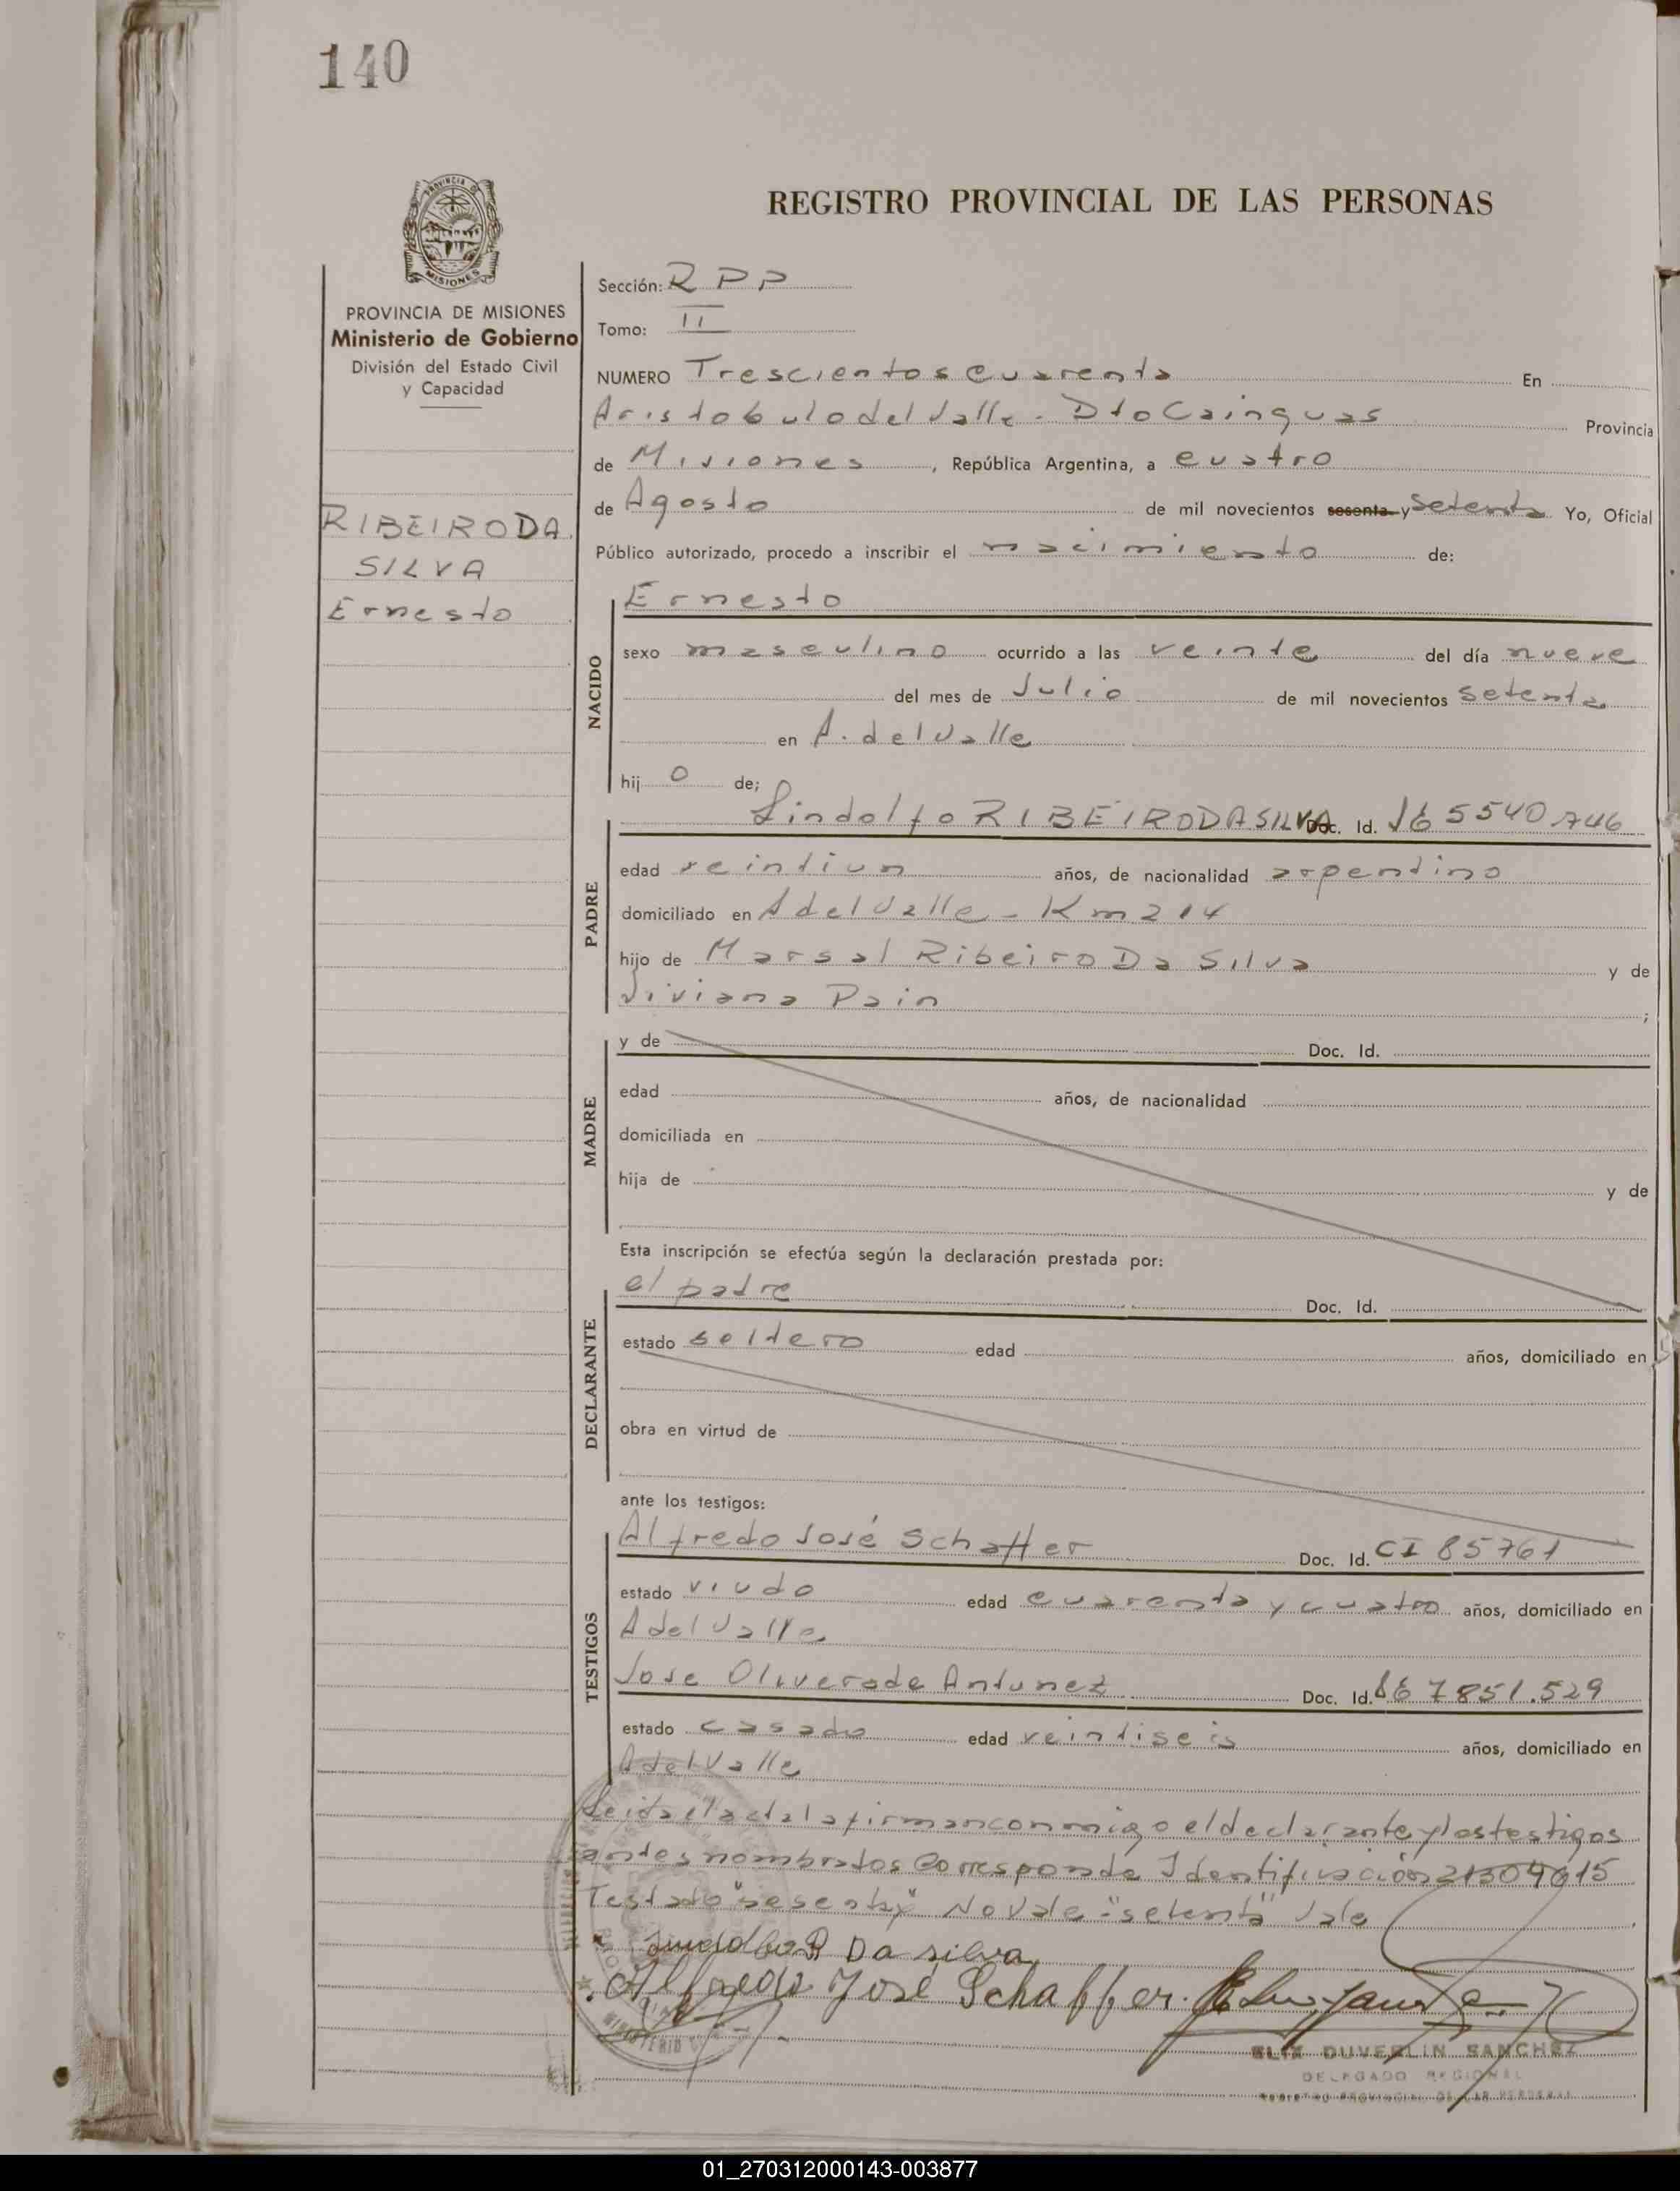 140
PROVINCIA DE
MISIONES
REGISTRO PROVINCIAL DE LAS PERSONAS
PROVINCIA DE MISIONES
Ministerio de Gobierno
División del Estado Civil
y Capacidad
RIBEIRO DA
SILVA
Ernesto
Sección: RPP
Tomo: II
NUMERO Trescientos cuarenta En
Aristobulo del Valle - Dto Cainguas Provincia
de Misiones, República Argentina, a cuatro
de Agosto de mil novecientos sesenta y setenta Yo, Oficial
Público autorizado, procedo a inscribir el nacimiento de:
NACIDO
Ernesto
sexo masculino ocurrido a las veinte del día nueve
del mes de Julio de mil novecientos setenta
en A. del Valle
hijo de;
PADRE
Lindolfo RIBEIRO DA SILVA Doc. Id. 5540746
edad veintiun años, de nacionalidad argentino
domiciliado en A del Valle - Km 214
hijo de Marsal Ribeiro Da Silva y de
Viviana Pain ;
MADRE
y de Doc. Id.
edad años, de nacionalidad
domiciliada en
hija de y de
Esta inscripción se efectúa según la declaración prestada por:
DECLARANTE
el padre Doc. Id.
estado soltero edad años, domiciliado en
obra en virtud de
ante los testigos:
TESTIGOS
Alfredo José Schaffer Doc. Id. CI 85761
estado viudo edad cuarenta y cuatro años, domiciliado en
A del Valle
Jose Olivera de Antunez Doc. Id. 7851.529
estado casado edad veintiseis años, domiciliado en
A del Valle
Leida el acta la firman conmigo el declarante y los testigos
antes nombrados Corresponde Identificación 21304615
Testado "sesenta y" No Vale - "setenta" Vale
R Da silva
Alfredo José Schaffer.
ELIX DUVERLIN SANCHEZ
DELEGADO REGIONAL
REGISTRO PROVINCIAL DE LAS PERSONAS
01_270312000143-003877